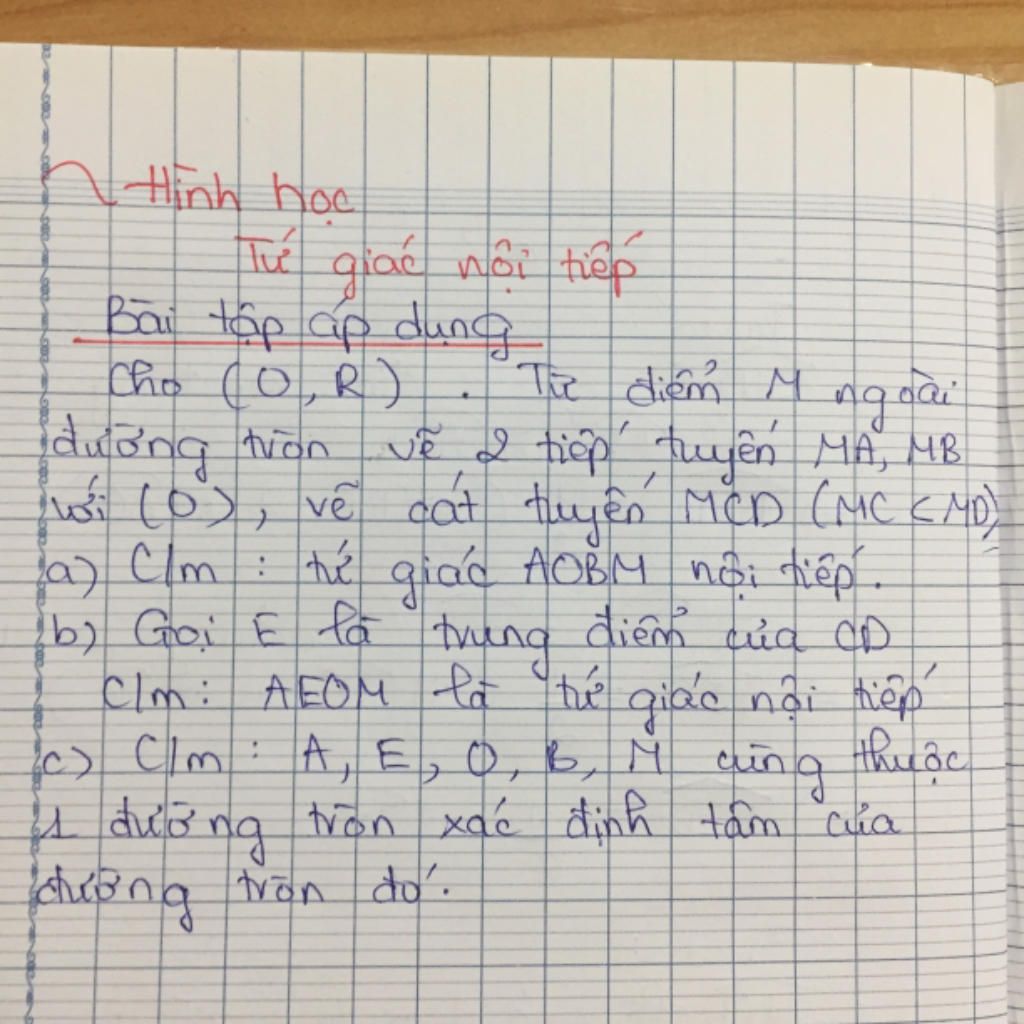 Hình học
Tứ giác nội tiếp
Bài tập áp dụng
Cho (O, R). Từ điểm M ngoài
đường tròn vẽ 2 tiếp tuyến MA, MB
với (O), vẽ cát tuyến MCD (MC < MD)
a) C/m : tứ giác AOBM nội tiếp.
b) Gọi E là trung điểm của CD
C/m : AEOM là tứ giác nội tiếp
c) C/m : A, E, O, B, M cùng thuộc
1 đường tròn xác định tâm của
đường tròn đó.